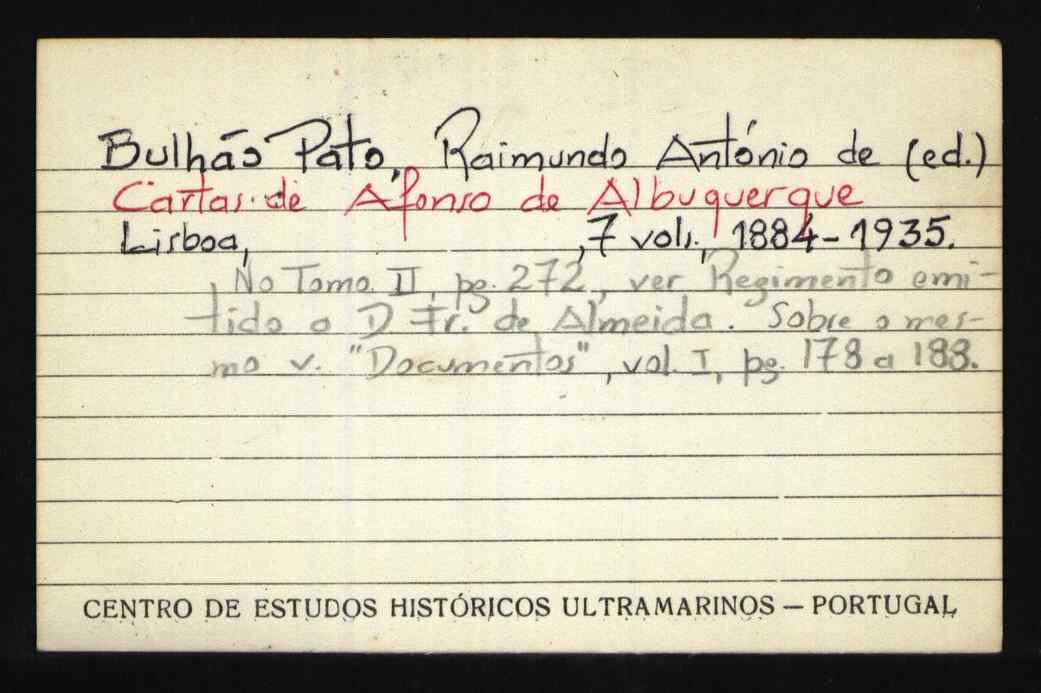 Bulhão Pato, Raimundo António de (ed.)
Cartas de Afonso de Albuquerque
Lisboa, , 7 vols., 1884-1935.
No Tomo II, pg. 272, ver Regimento emi-
tido a D Fr. de Almeida. Sobre o mes-
mo v. "Documentos", vol. I, pg. 178 a 188.
CENTRO DE ESTUDOS HISTÓRICOS ULTRAMARINOS — PORTUGAL